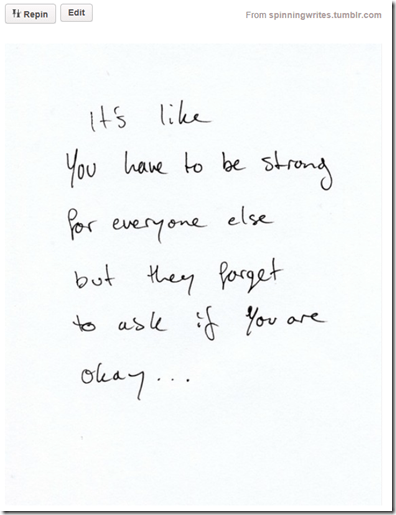 Repin Edit From spinningwrites.tumblr.com
It's like
You have to be strong
for everyone else
but they forget
to ask if you are
okay...